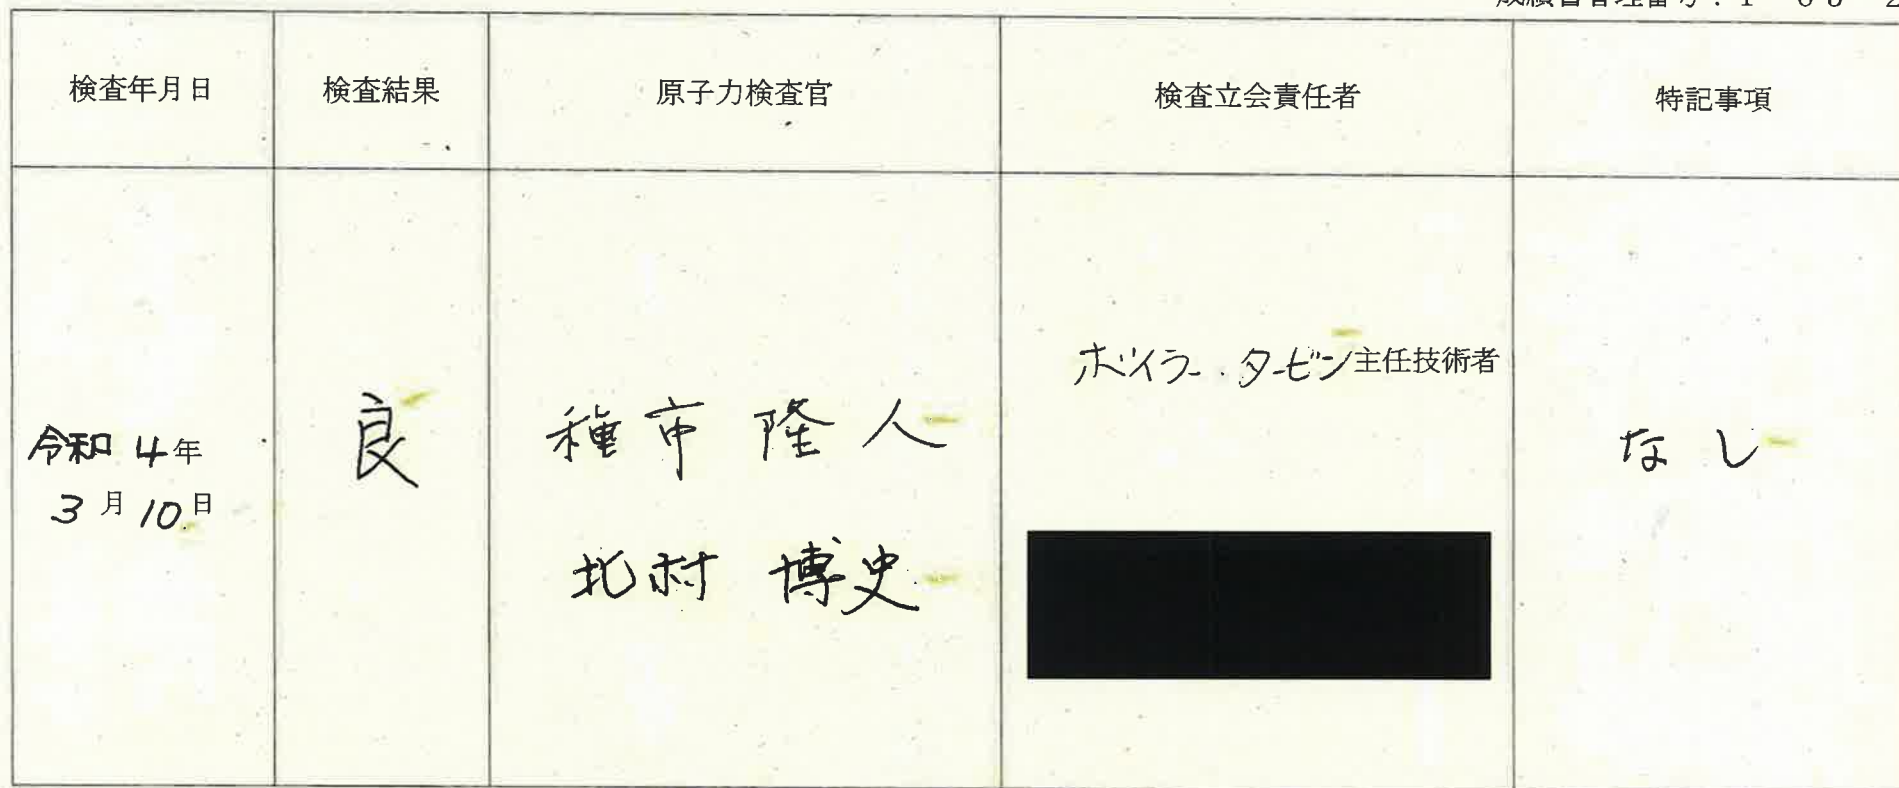 検査年月日
検査結果
原子力検査官
検査立会責任者
特記事項
令和4年
3月10日
良
種市 隆人
北村 博史
ボイラー・タービン主任技術者
なし